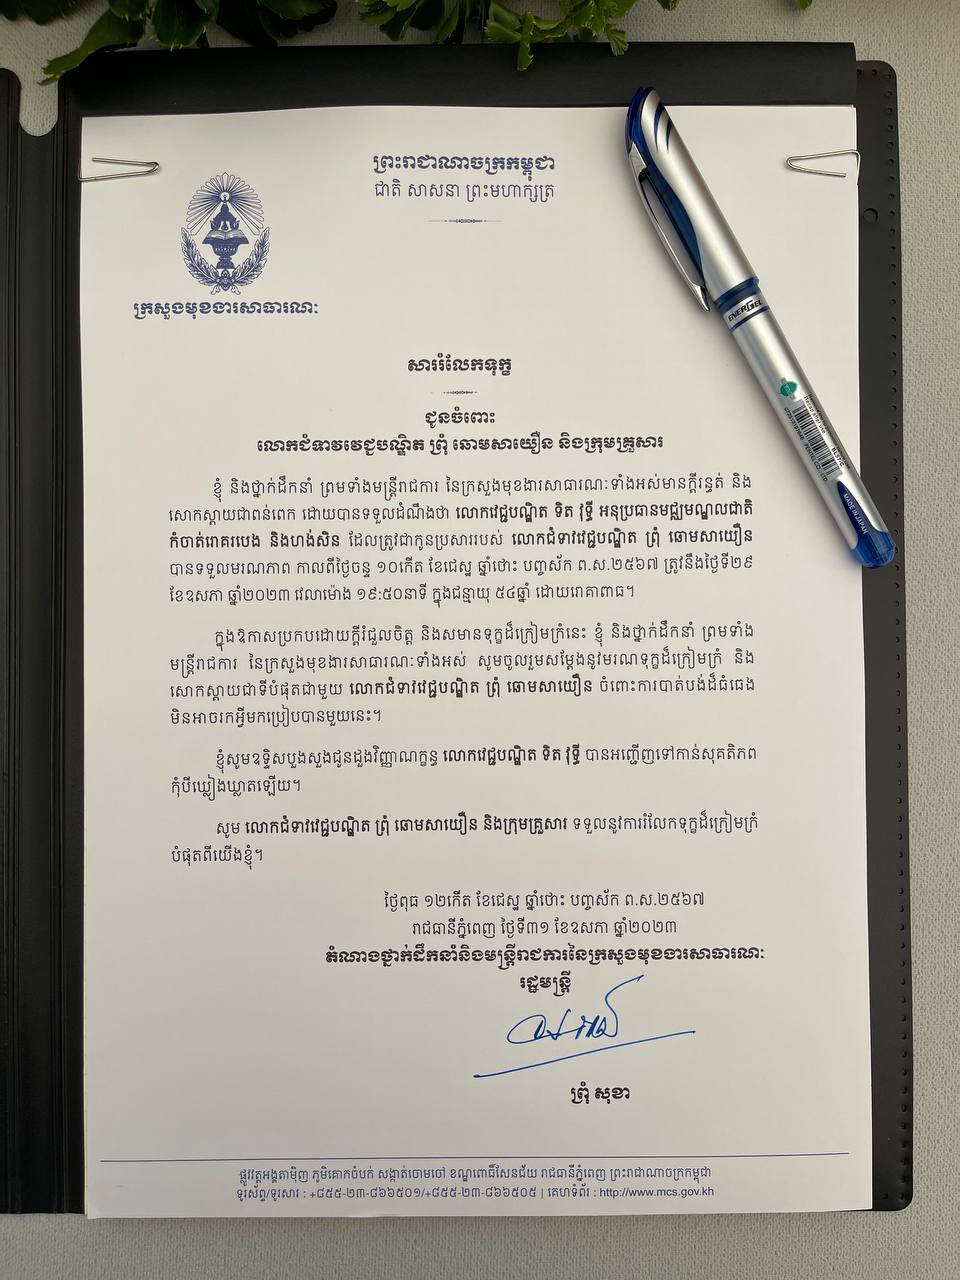 ព្រះរាជាណាចក្រកម្ពុជា
ជាតិ សាសនា ព្រះមហាក្សត្រ
ក្រសួងមុខងារសាធារណៈ
សាររំលែកទុក្ខ
ជូនចំពោះ
លោកជំទាវវេជ្ជបណ្ឌិត ព្រុំ ឆោមសាយឿន និងក្រុមគ្រួសារ
ខ្ញុំ និងថ្នាក់ដឹកនាំ ព្រមទាំងមន្ត្រីរាជការ នៃក្រសួងមុខងារសាធារណៈទាំងអស់មានក្តីរន្ធត់ និង
សោកស្តាយជាពន់ពេក ដោយបានទទួលដំណឹងថា លោកវេជ្ជបណ្ឌិត ទិត វុទ្ធី អនុប្រធានមជ្ឈមណ្ឌលជាតិ
កំចាត់រោគរបេង និងហង់សិន ដែលត្រូវជាកូនប្រសាររបស់ លោកជំទាវវេជ្ជបណ្ឌិត ព្រុំ ឆោមសាយឿន
បានទទួលមរណភាព កាលពីថ្ងៃចន្ទ ១០កើត ខែជេស្ឋ ឆ្នាំថោះ បញ្ចស័ក ព.ស.២៥៦៧ ត្រូវនឹងថ្ងៃទី២៩
ខែឧសភា ឆ្នាំ២០២៣ វេលាម៉ោង ១៩:៥០នាទី ក្នុងជន្មាយុ ៥៤ឆ្នាំ ដោយរោគាពាធ។
ក្នុងឱកាសប្រកបដោយក្តីរំជួលចិត្ត និងសមានទុក្ខដ៏ក្រៀមក្រំនេះ ខ្ញុំ និងថ្នាក់ដឹកនាំ ព្រមទាំង
មន្ត្រីរាជការ នៃក្រសួងមុខងារសាធារណៈទាំងអស់ សូមចូលរួមសម្តែងនូវមរណទុក្ខដ៏ក្រៀមក្រំ និង
សោកស្តាយជាទីបំផុតជាមួយ លោកជំទាវវេជ្ជបណ្ឌិត ព្រុំ ឆោមសាយឿន ចំពោះការបាត់បង់ដ៏ធំធេង
មិនអាចរកអ្វីមកប្រៀបបានមួយនេះ។
ខ្ញុំសូមឧទ្ទិសបួងសួងជូនដួងវិញ្ញាណក្ខន្ធ លោកវេជ្ជបណ្ឌិត ទិត វុទ្ធី បានអញ្ជើញទៅកាន់សុគតិភព
កុំបីឃ្លៀងឃ្លាតឡើយ។
សូម លោកជំទាវវេជ្ជបណ្ឌិត ព្រុំ ឆោមសាយឿន និងក្រុមគ្រួសារ ទទួលនូវការរំលែកទុក្ខដ៏ក្រៀមក្រំ
បំផុតពីយើងខ្ញុំ។
ថ្ងៃពុធ ១២កើត ខែជេស្ឋ ឆ្នាំថោះ បញ្ចស័ក ព.ស.២៥៦៧
រាជធានីភ្នំពេញ ថ្ងៃទី៣១ ខែឧសភា ឆ្នាំ២០២៣
តំណាងថ្នាក់ដឹកនាំនិងមន្ត្រីរាជការនៃក្រសួងមុខងារសាធារណៈ
រដ្ឋមន្ត្រី
ព្រុំ សុខា
ផ្លូវវត្តអង្គតាម៉ិញ ភូមិគោកចំបក់ សង្កាត់ចោមចៅ ខណ្ឌពោធិ៍សែនជ័យ រាជធានីភ្នំពេញ ព្រះរាជាណាចក្រកម្ពុជា
ទូរស័ព្ទ/ទូរសារ : +៨៥៥-២៣-៨៦៦៥០១/+៨៥៥-២៣-៨៦៦៥០៥ | គេហទំព័រ : http://www.mcs.gov.kh
ENERGEL
PENTEL CO., LTD.
MADE IN JAPAN